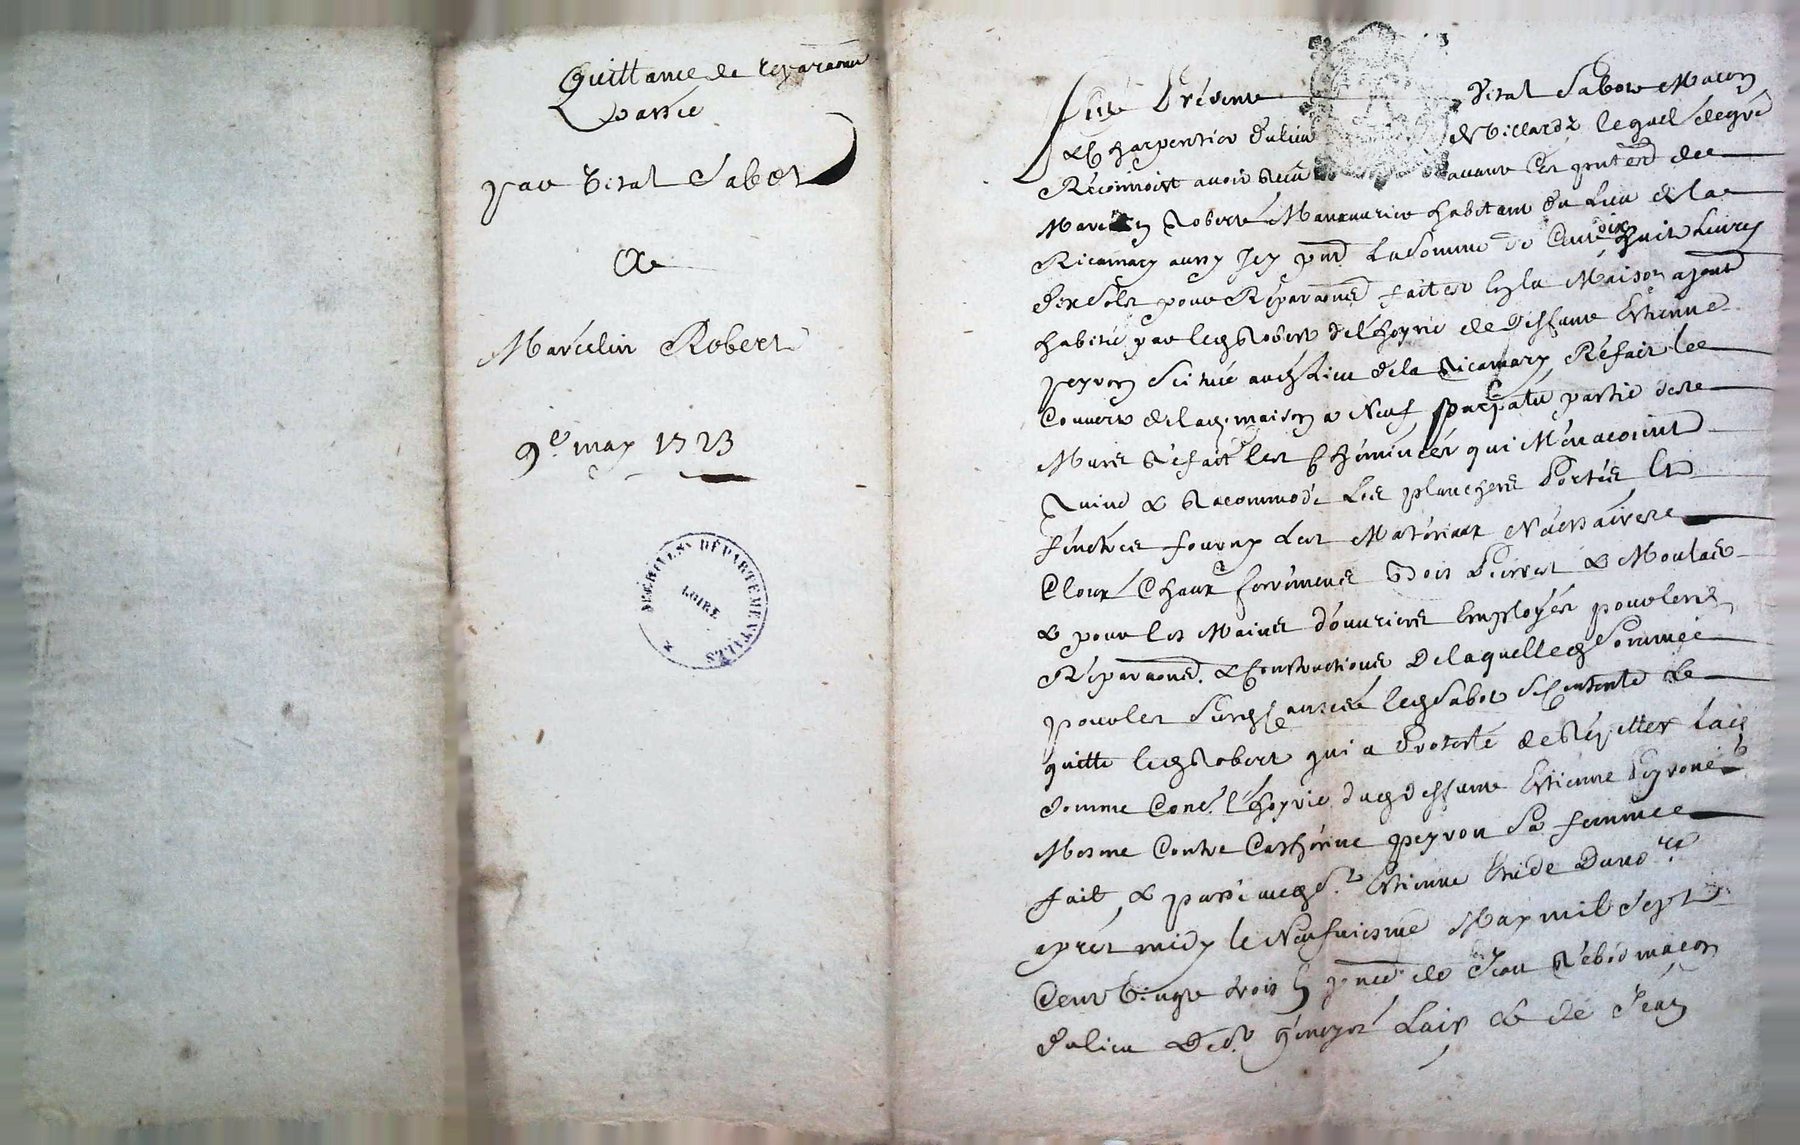 Quittance de reparaons
passée
par Vital Sabot
A
Marcelin Robert
9e. may 1723
ARCHIVES DÉPARTEMENTALES
LOIRE
Fut Présent Vital Sabot Macon
& Charpentier du lieu de Villardz lequel de gré
Réconnoist avoir receu avant ces pntes de
Marcelin Robert habitant du Lieu de la
Ricamary aussy Icy pnt La Somme de Cent dix huit Livres
dix sols pour Réparaons faites En la Maison a pnt
habitée par led Robert de l'hoyrie de deffunt Estienne
peyron Scitué aud Lieu de la Ricamary, Refait le
Couvert de lad. maison a Neuf, partie des
Murs Réfait les Chéminées qui Ménacoient
Ruine & Racommodé Les planchers Portes Et
fénétres fourny Les Matériaux Nécéssaires
Cloux Chaux ferréments Bois Pierres &
& pour les Mains d'ouvriers Employés pour les
Réparaons. & Constructions De laquelle d Somme
pour les Susd led Sabot Se Contente &
quitte led Robert qui a Protesté de Répetter Lad
Somme Cone. l'hoyrie dud deffunt Estienne Peyron &
Mesme Contre Catherine peyron Sa femme
fait & passé aud St Estienne Etude Du
aprés midy le Neufuiesme May mil Sept
Cent Vingt trois En pnce de Jean macon
du lieu De St généyst Lair & de Jean